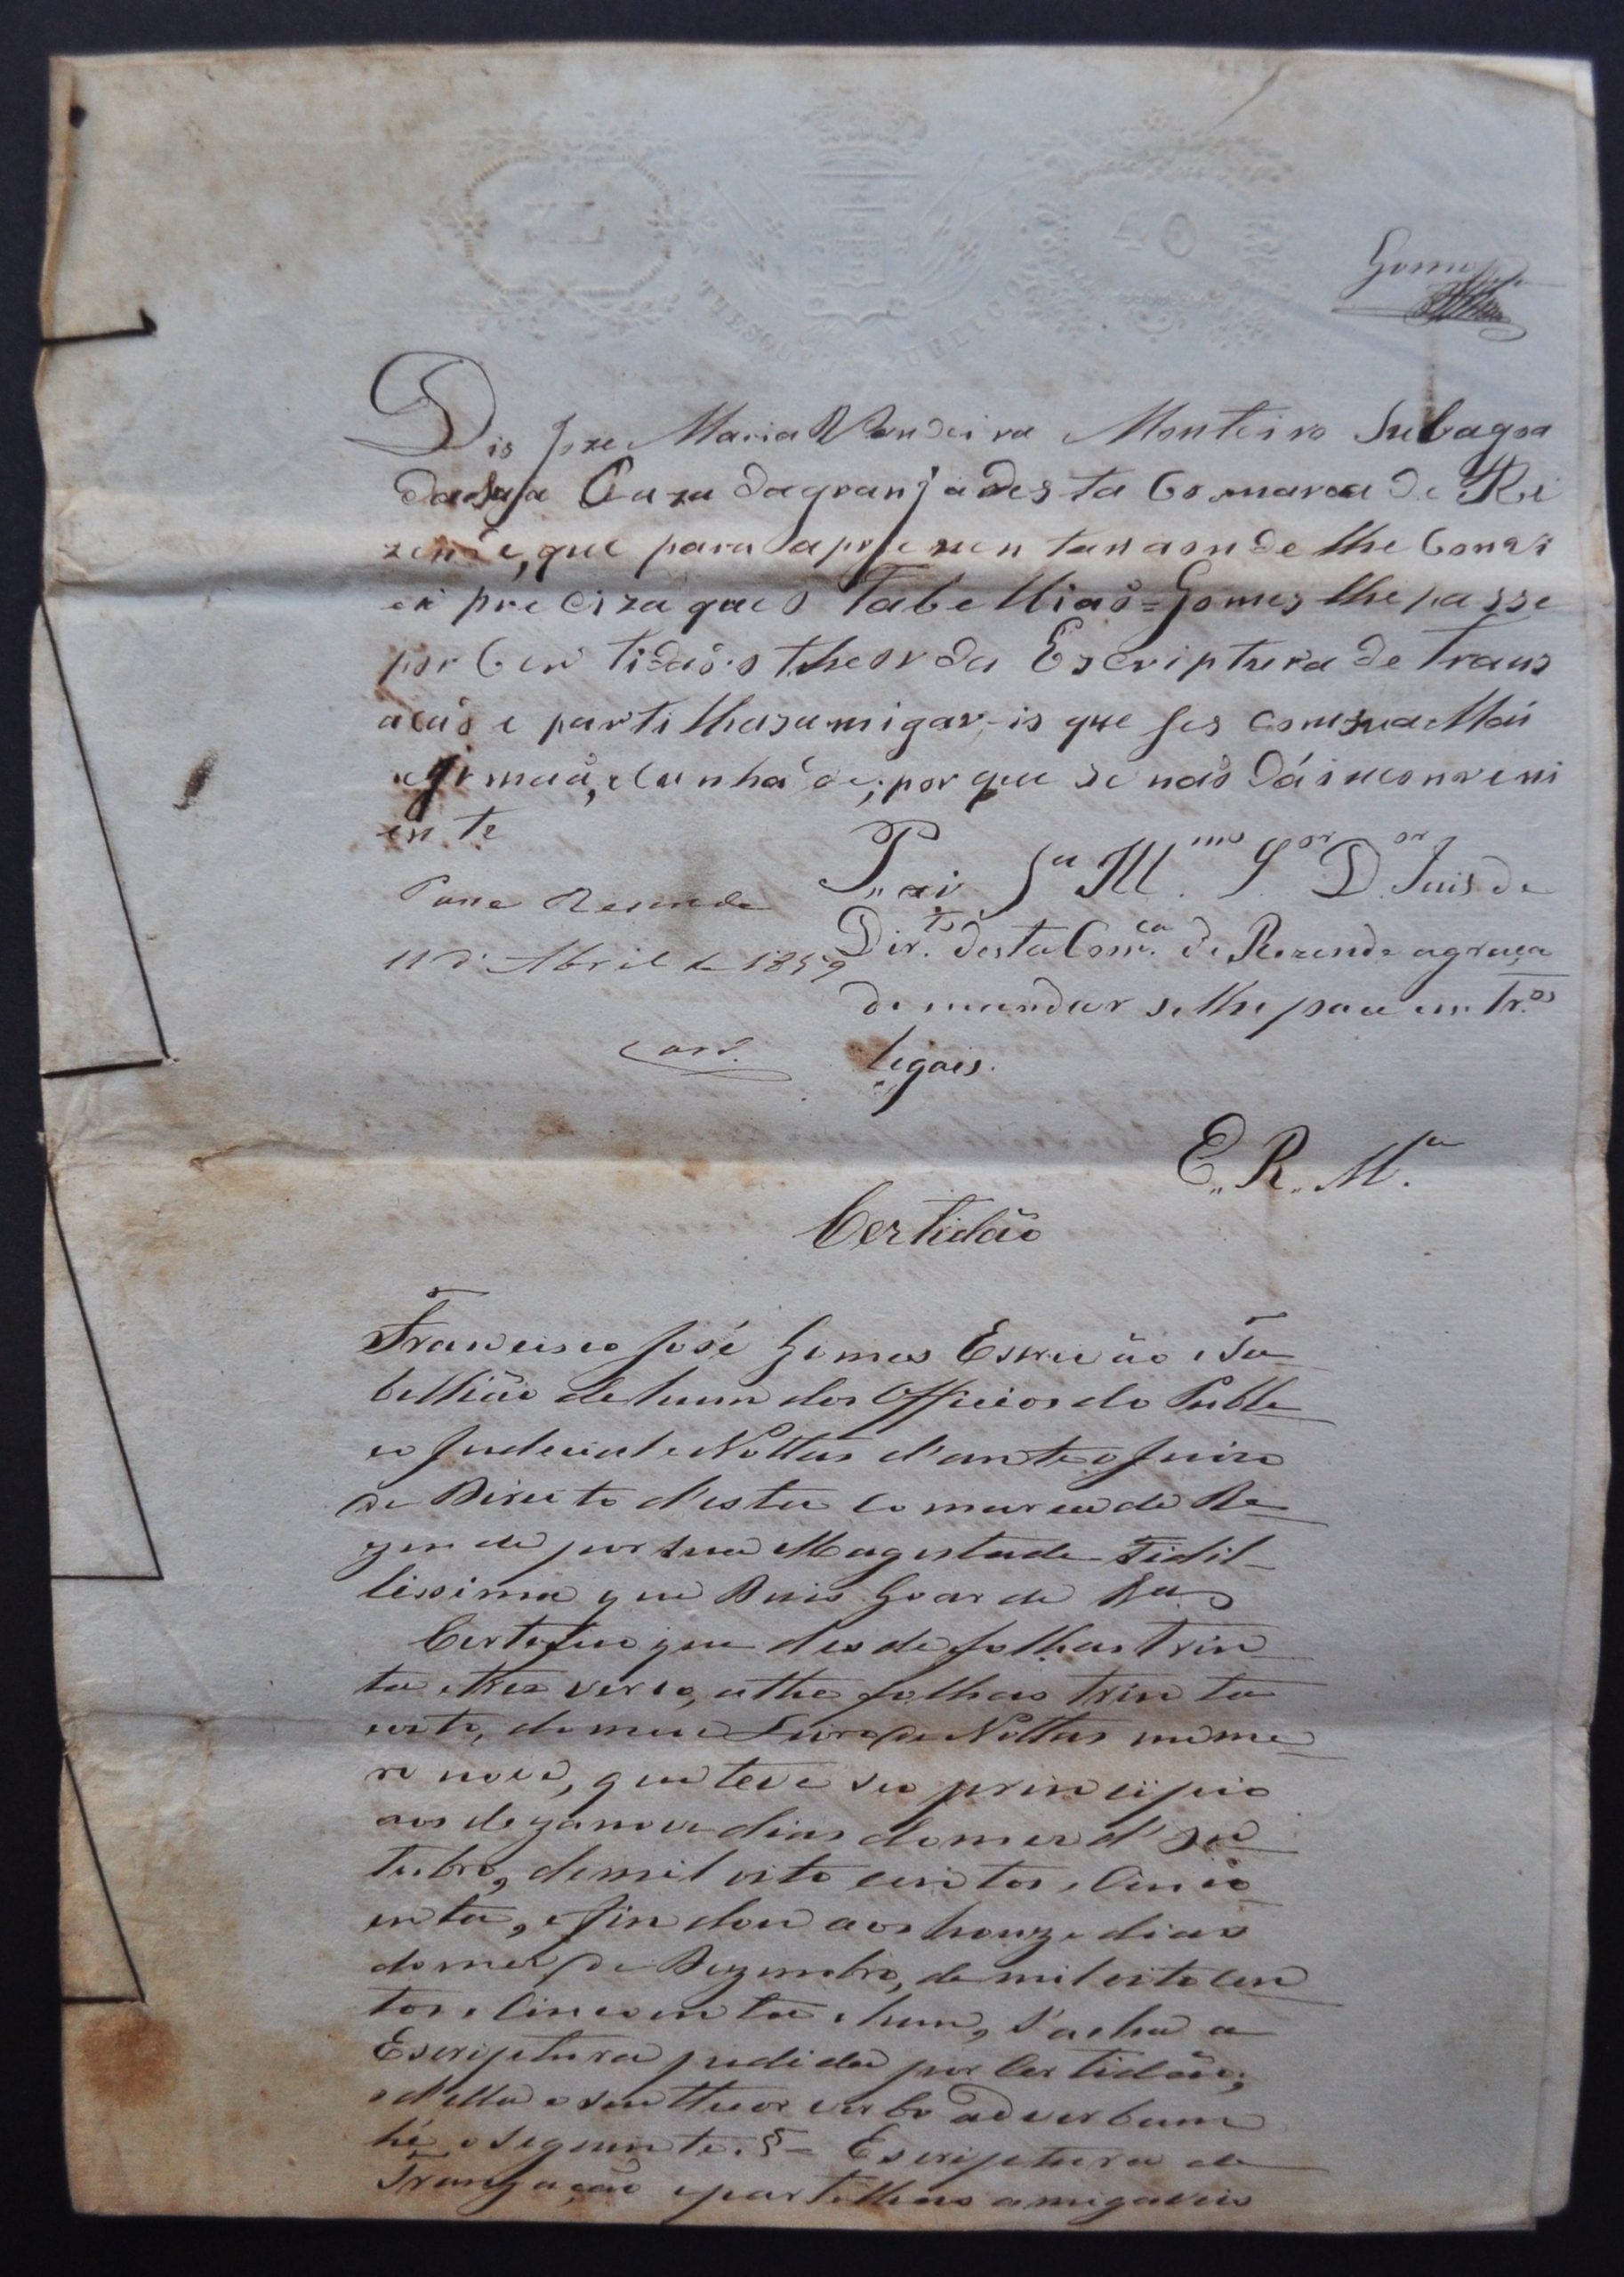 40
THESOURO PUBLICO
Gomes
Dis Joze Maria Bandeira Monteiro
da Caza dagranja desta Comarca de Re
zende, que para apprezentar aonde lhe Convi
er precizaque o Tabelliaõ = Gomes lhe passe
por Certidaõ o theor da Escriptura de Trans
acaõ e partilhasamigaveis que fes comsua Mái
eIrmaã, eCunhádo; porque se naõ dá inconveni
ente
P., a V. Sª Ill.mo S.or D.or Juis de
Dir.to desta Com.ca de Rezende agraça
de mandar selhe passe em tr.os
legais.
Passe Rezende
11 d'Abril de 1859
Card.
E., R., M.ce
Certidão
Francisco José Gomes Escrivão e Ta
bellião de hum dos Officios do Publi
co Judecial e Nottas d'ante o Juizo
de Direito d'esta Comarca de Re
zende por Sua Magestade Fidel
lissima que Deos Goarde &.ª
Certefico que desde folhas trin
ta e tres verso, athe folhas trinta
e oito, do meu Livro de Nottas nume
ro nove, que teve seu principio
aos dezanove dias do mez d'Ou
tubro, de mil oito centos e Cinco
enta, e findou aos honze dias
do mez de Dezembro, de mil oito cen
tos e Cincoenta e hum, s'acha a
Escriptura pedida por Certidão;
e d'ella o seu theor verbo adverbum
hé o seguinte. § = Escriptura de
Tranzação e partilhas amigaveis